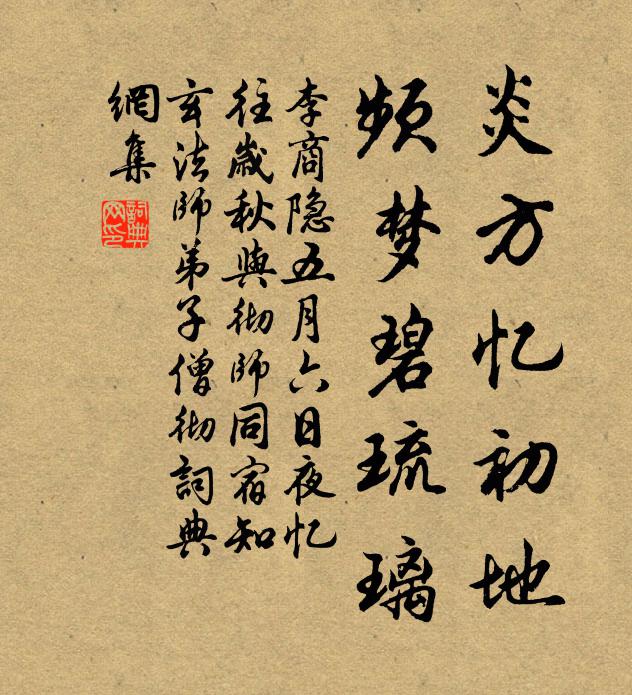 炎方忆初地
频梦碧琉璃
李商隐五月六日夜忆
往岁秋与彻师同宿知
玄法师弟子僧彻词典
網集
詞典網印